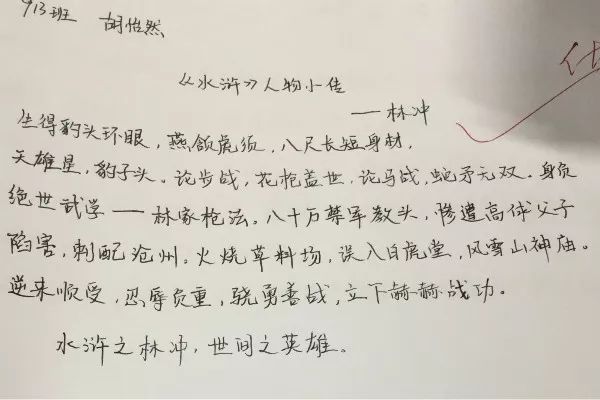 913班 胡怡然
《水浒》人物小传
——林冲
生得豹头环眼，燕颔虎须，八尺长短身材，
天雄星，豹子头。论步战，花枪盖世，论马战，蛇矛无双。身负
绝世武学——林家枪法。八十万禁军教头，惨遭高俅父子
陷害，刺配沧州。火烧草料场，误入白虎堂，风雪山神庙。
逆来顺受，忍辱负重，骁勇善战，立下赫赫战功。
水浒之林冲，世间之英雄。